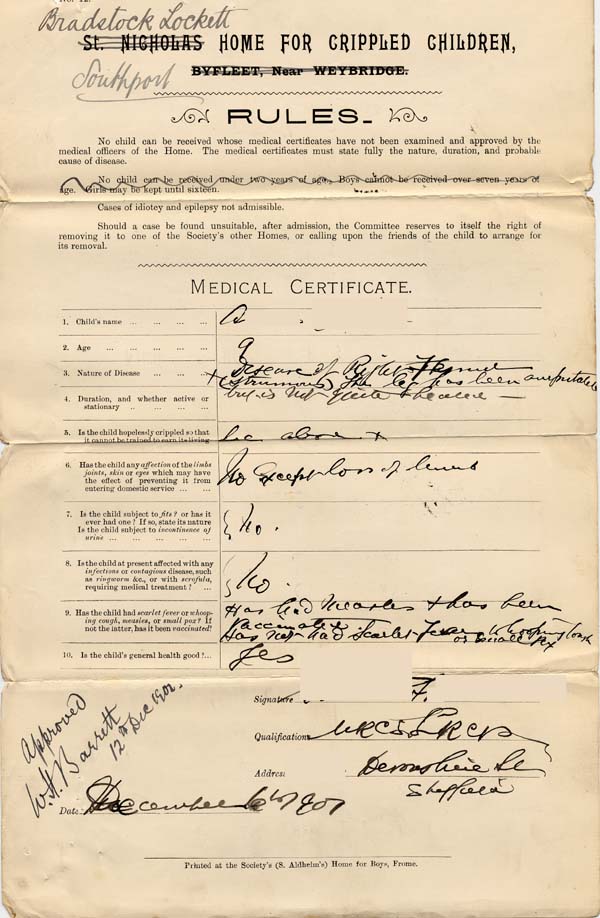 Bradstock Lockett
St. NICHOLAS HOME FOR CRIPPLED CHILDREN,
Southport
BYFLEET, Near WEYBRIDGE.
RULES.
No child can be received whose medical certificates have not been examined and approved by the
medical officers of the Home. The medical certificates must state fully the nature, duration, and probable
cause of disease.
No child can be received under two years of age. Boys cannot be received over seven years of
age. Girls may be kept until sixteen.
Cases of idiotcy and epilepsy not admissible.
Should a case be found unsuitable, after admission, the Committee reserves to itself the right of
removing it to one of the Society's other Homes, or calling upon the friends of the child to arrange for
its removal.
MEDICAL CERTIFICATE.
1. Child's name ... ... ... ... A
2. Age ... ... ... ... 9
3. Nature of Disease ... ... ... Disease of Right Femur
+ (Strumous) The leg has been amputated
but is not quite healed —
4. Duration, and whether active or
stationary .. ... ... ...
5. Is the child hopelessly crippled so that
it cannot be trained to earn its living
See above +
6. Has the child any affection of the limbs
joints, skin or eyes which may have
the effect of preventing it from
entering domestic service ... ...
No Except loss of limb
7. Is the child subject to fits? or has it
ever had one? If so, state its nature
Is the child subject to incontinence of
urine ... ... ... ... ...
No.
8. Is the child at present affected with any
infectious or contagious disease, such
as ringworm &c., or with scrofula,
requiring medical treatment? ...
No.
9. Has the child had scarlet fever or whoop-
ing cough, measles, or small pox? If
not the latter, has it been vaccinated?
Has had Measles & has been
Vaccinated
Has not had Scarlet Fever Whooping Cough
or Small Pox
10. Is the child's general health good?... Yes
Signature F.
Qualification MRCS LRCP
Address Devonshire
Sheffield
Approved
W.H. Barrett
12th Dec 1901.
Date December 1901
Printed at the Society's (S. Aldhelm's) Home for Boys, Frome.